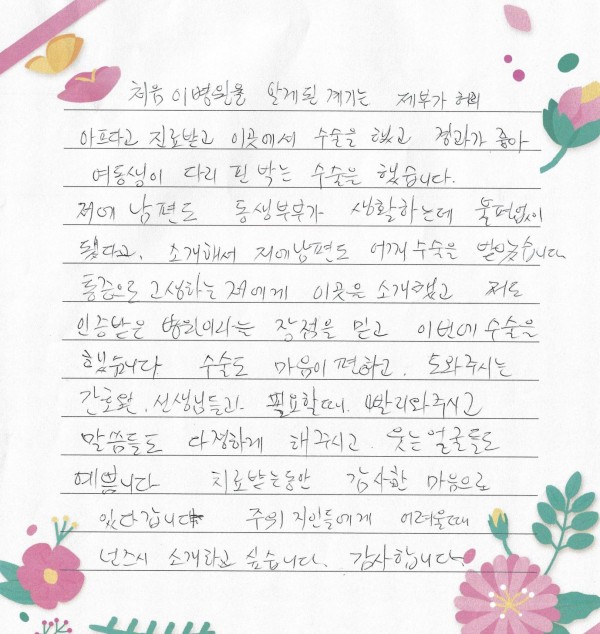 처음 이병원을 알게된 계기는 제부가 허리
아프다고 진료받고 이곳에서 수술을 했고 경과가 좋아
여동생이 다리 핀 박는 수술을 했습니다.
저에 남편도 동생부부가 생활하는데 불편없이
됐다고. 소개해서 저에남편도 어깨 수술을 받았습니다
통증으로 고생하는 저에게 이곳을 소개했고 저도
인증받은 병원이라는 장점을 믿고 이번에 수술을
했습니다 수술도 마음이 편하고. 도와주시는
간호원. 선생님들과. 필요할때. 빨리와주시고
말씀들도 다정하게 해주시고. 웃는얼굴들도
예쁩니다 치료받는동안 감사한 마음으로
있다갑니다 주위 지인들에게 어려울때
넌즈시 소개하고 싶습니다. 감사합니다.